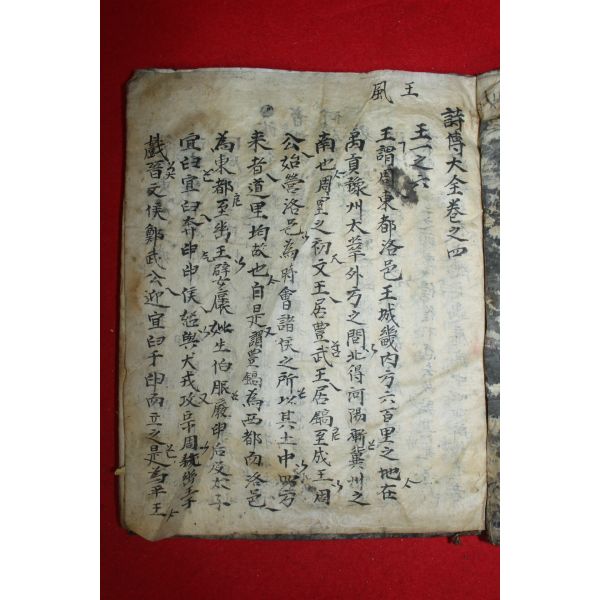 王風
詩傳大全卷之四
王一之六
王謂周東都洛邑王城畿內方六百里之地在
禹貢豫州太華外方之間北得河陽漸冀州之
南也周室之初文王居豊武王居鎬至成王周
公始營洛邑為時會諸侯之所以其土中四方
来者道里均故也自是謂豊鎬為西都而洛邑
為東都至幽王嬖褒姒生伯服廢申后及太子
宜臼宜臼奔申申侯怒與犬戎攻宗周弒幽王于
戲晉文侯鄭武公迎宜臼于申而立之是為平王